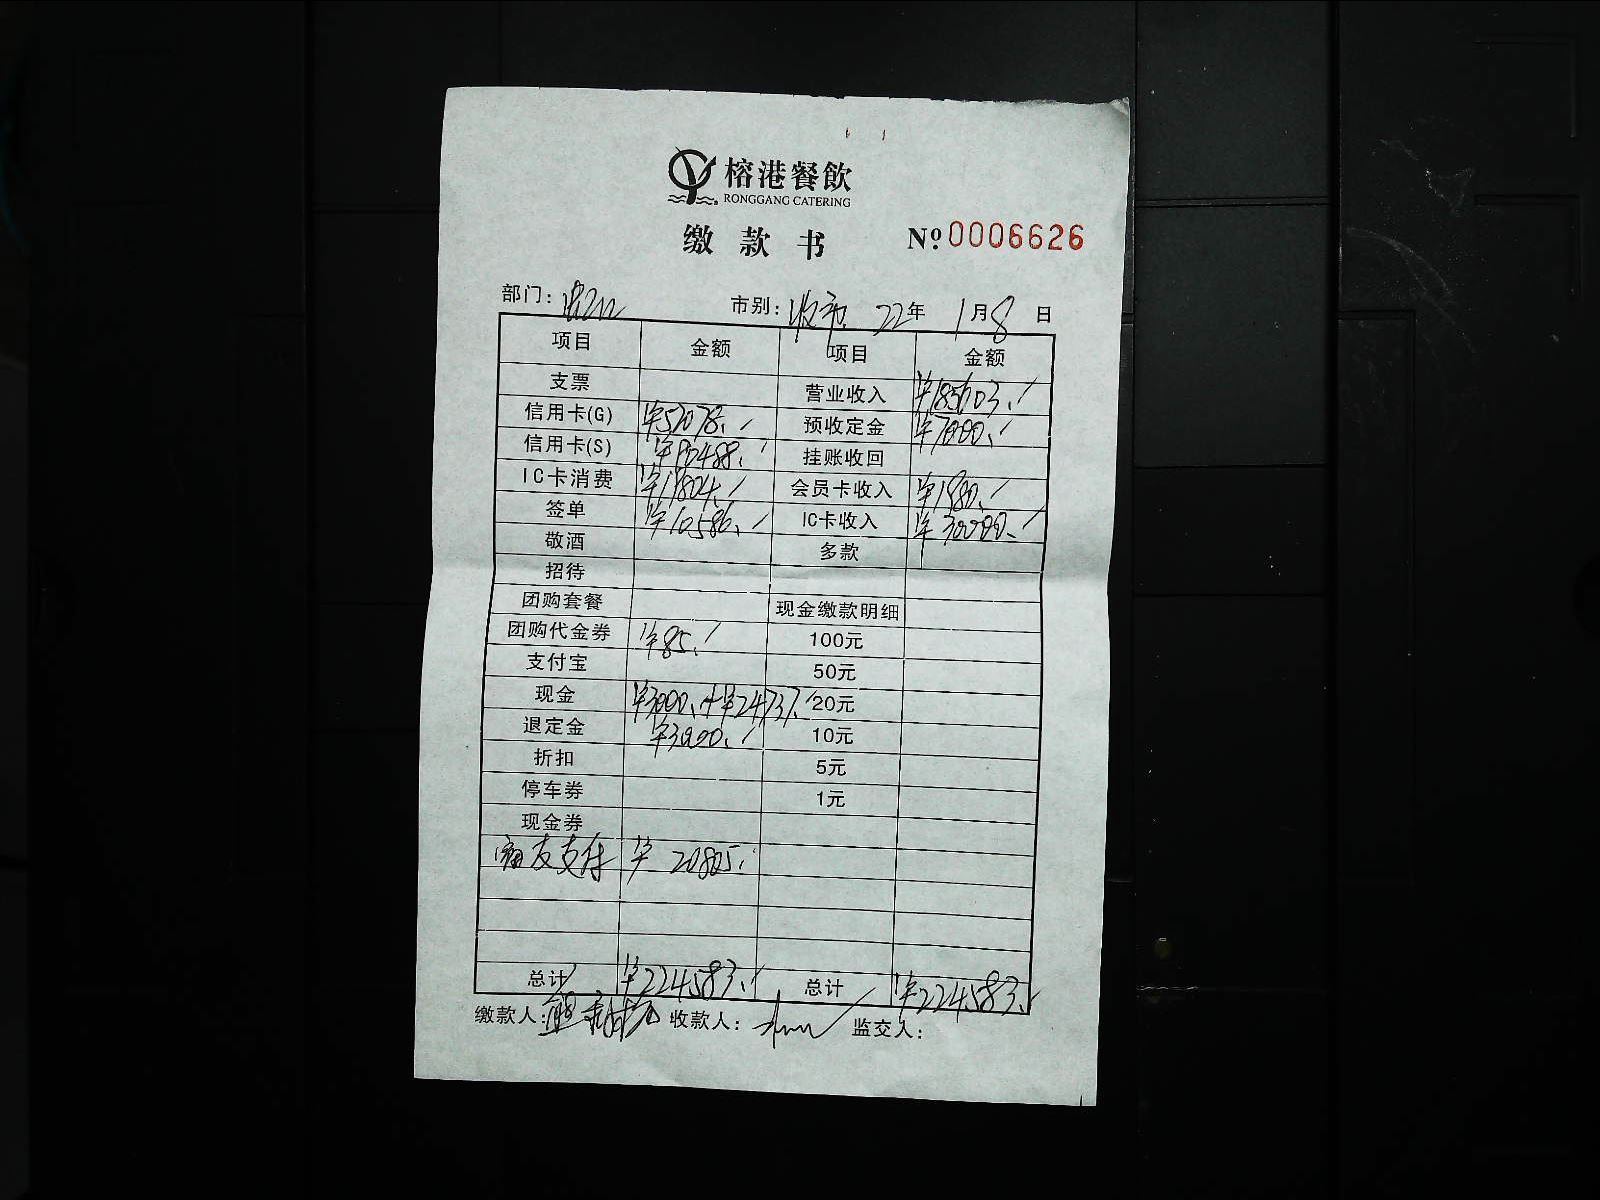 榕港餐飲
RONGGANG CATERING
缴款书 Nº 0006626
部门: 市别: 收市 22年 1月 8日
项目 金额 项目 金额
支票 营业收入 ¥185603.
信用卡(G) ¥57078. 预收定金 ¥7000.
信用卡(S) ¥90488. 挂账收回
IC卡消费 ¥14804. 会员卡收入 ¥1980.
签单 ¥10586. IC卡收入 ¥30000.
敬酒 多款
招待
团购套餐 现金缴款明细
团购代金券 ¥85. 100元
支付宝 50元
现金 ¥3000.+¥24737. 20元
退定金 ¥3000. 10元
折扣 5元
停车券 1元
现金券
支付 ¥20805.
总计 ¥224583. 总计 ¥224583.
缴款人: 收款人: 监交人: